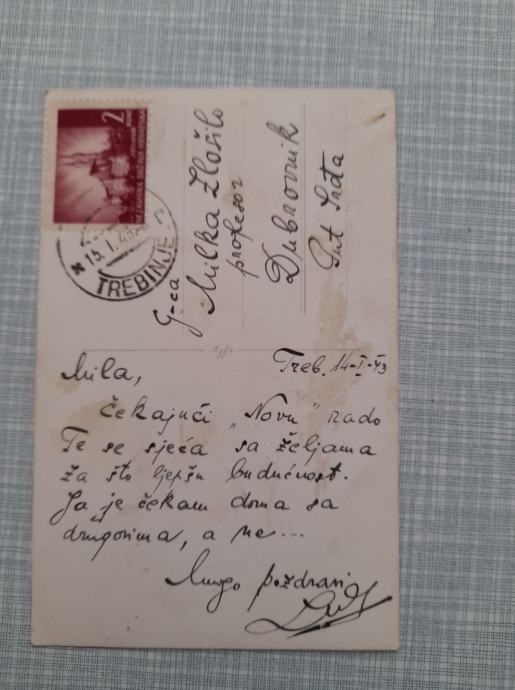 2
15. I. 43
TREBINJE
G-ca
Milka Zlošilo
profesor
Dubrovnik
Put Srđa
Treb. 14-I-43
Mila,
Čekajući „Novu" rado
Te se sjeća sa željama
za što ljepšu budućnost.
Ja je čekam doma sa
drugovima, a ne...
Mnogo pozdrava